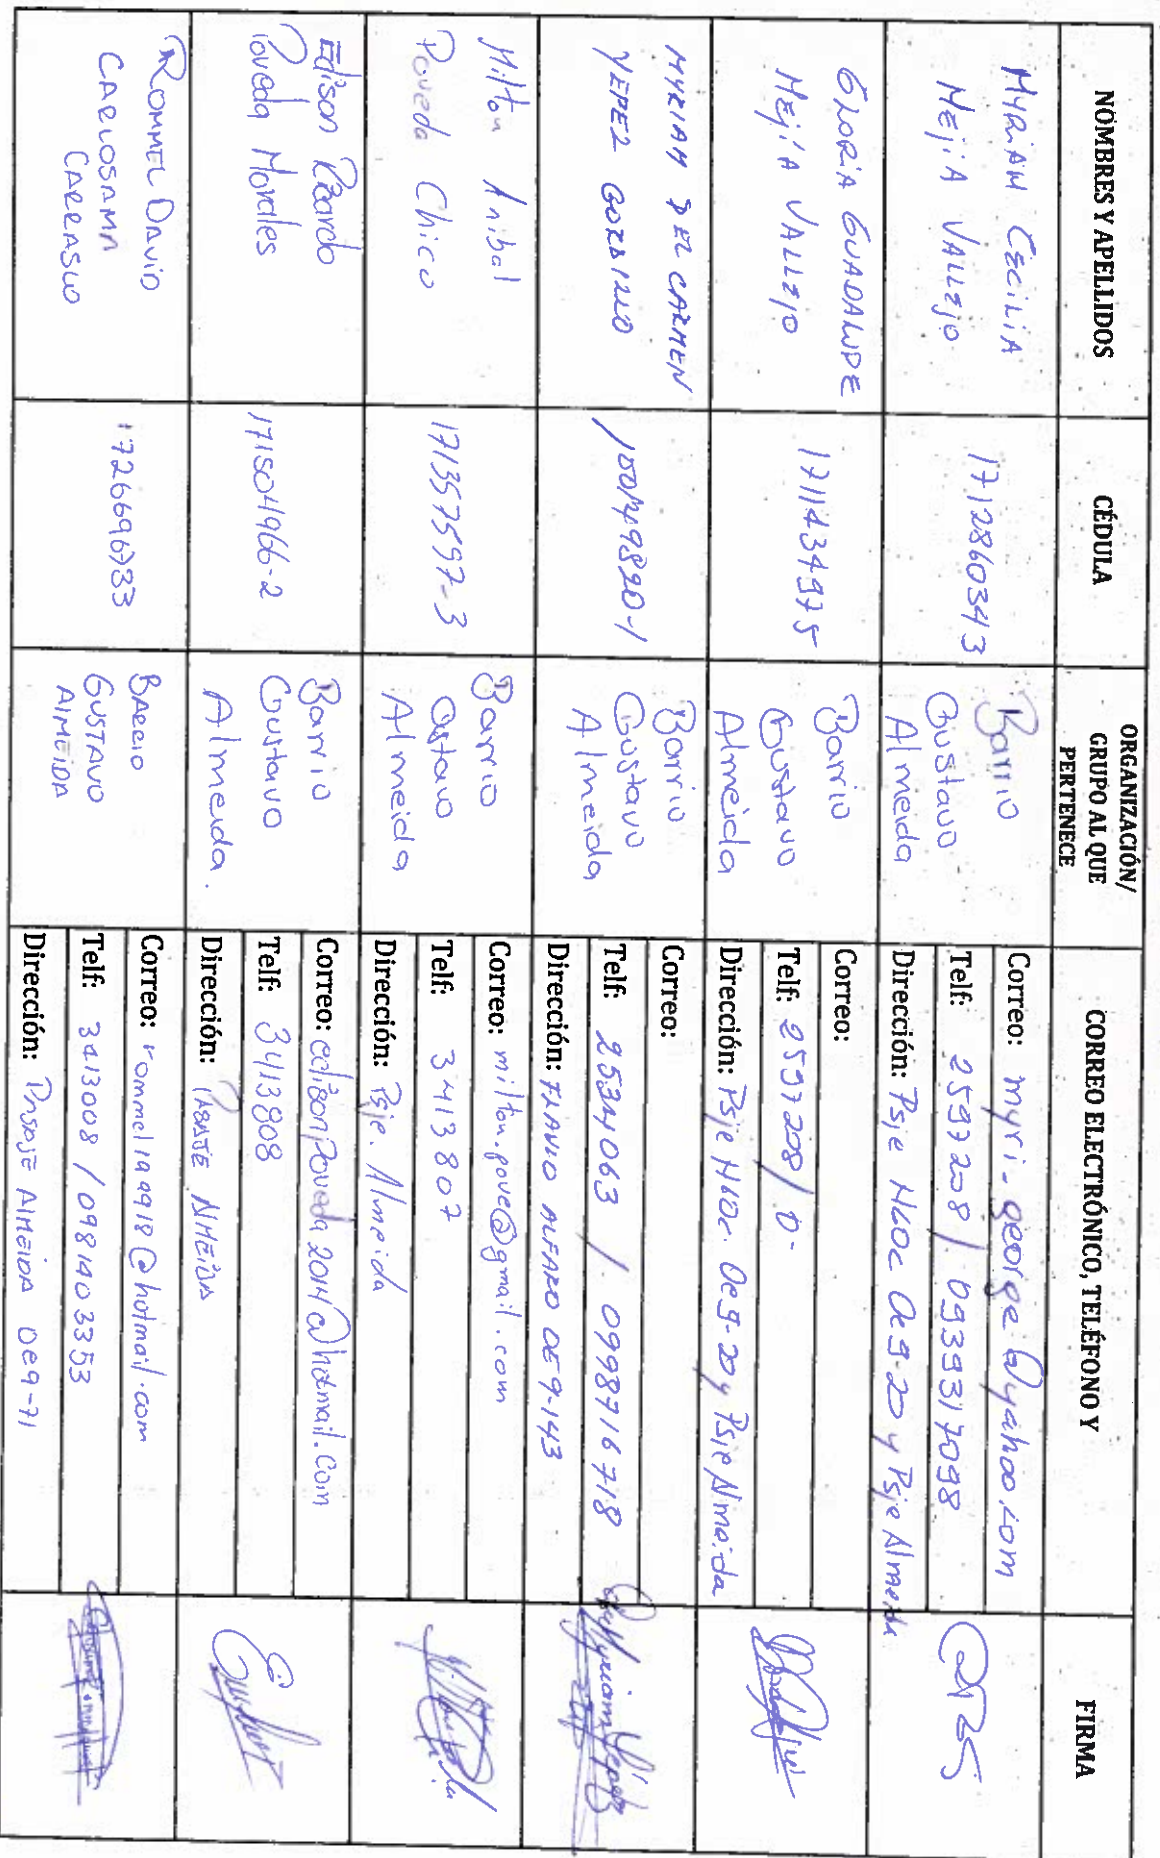 NOMBRES Y APELLIDOS
CÉDULA
ORGANIZACIÓN/
GRUPO AL QUE
PERTENECE
CORREO ELECTRÓNICO, TELÉFONO Y
FIRMA
MYRIAM CECILIA
MEJIA VALLEJO
1712860343
Barrio
Gustavo
Almeida
Correo: myri-george@yahoo.com
Telf: 2597208 / 0939317098
Dirección: Psje N60c Oe9-20 y Psje Almeida
GLORIA GUADALUPE
MEJIA VALLEJO
1711434975
Barrio
Gustavo
Almeida
Correo:
Telf: 2597208 / 0-
Dirección: Psje N60c. Oe9-20 y Psje Almeida
MYRIAM DEL CARMEN
YEPEZ GORDILLO
100149820-1
Barrio
Gustavo
Almeida
Correo:
Telf: 2534063 / 0998716718
Dirección: FLAVIO ALFARO OE9-143
Milton Anibal
Poveda Chico
171357597-3
Barrio
Gstavo
Almeida
Correo: milton.pove@gmail.com
Telf: 3413807
Dirección: Psje. Almeida
Edison Ricardo
Poveda Morales
171504966-2
Barrio
Gustavo
Almeida.
Correo: edisonpoveda2014@hotmail.com
Telf: 3413808
Dirección: PASAJE ALMEIDA
ROMMEL DAVID
CARLOSAMA
CARRASCO
1726696733
BARRIO
GUSTAVO
AlMEIDA
Correo: rommel199918@hotmail.com
Telf: 3413008 / 0981403353
Dirección: PASAJE ALMEIDA OE9-71